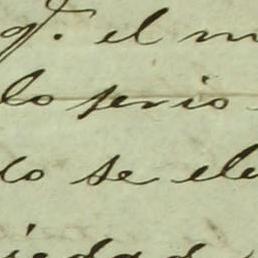 q.e el m
lo serio
co se ele
iedad